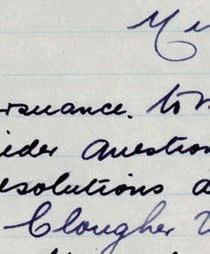 rsuance. to
ider Question
esolutions a
Clougher